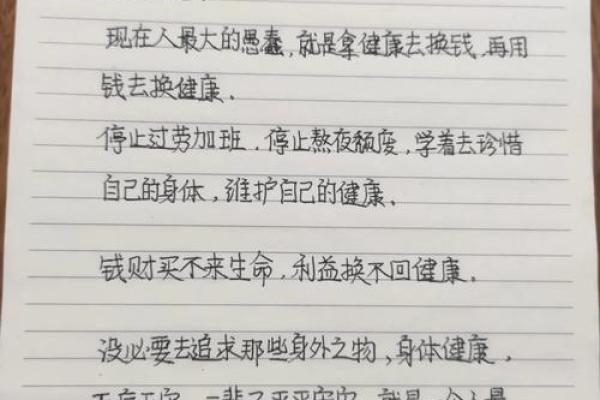 现在人最大的愚蠢,就是拿健康去换钱,再用
钱去换健康.
停止过劳加班.停止熬夜颓废,学着去珍惜
自己的身体,维护自己的健康.
钱财买不来生命,利益换不回健康.
没必要去追求那些身外之物,身体健康,
一辈子平平安安,就是一个人最